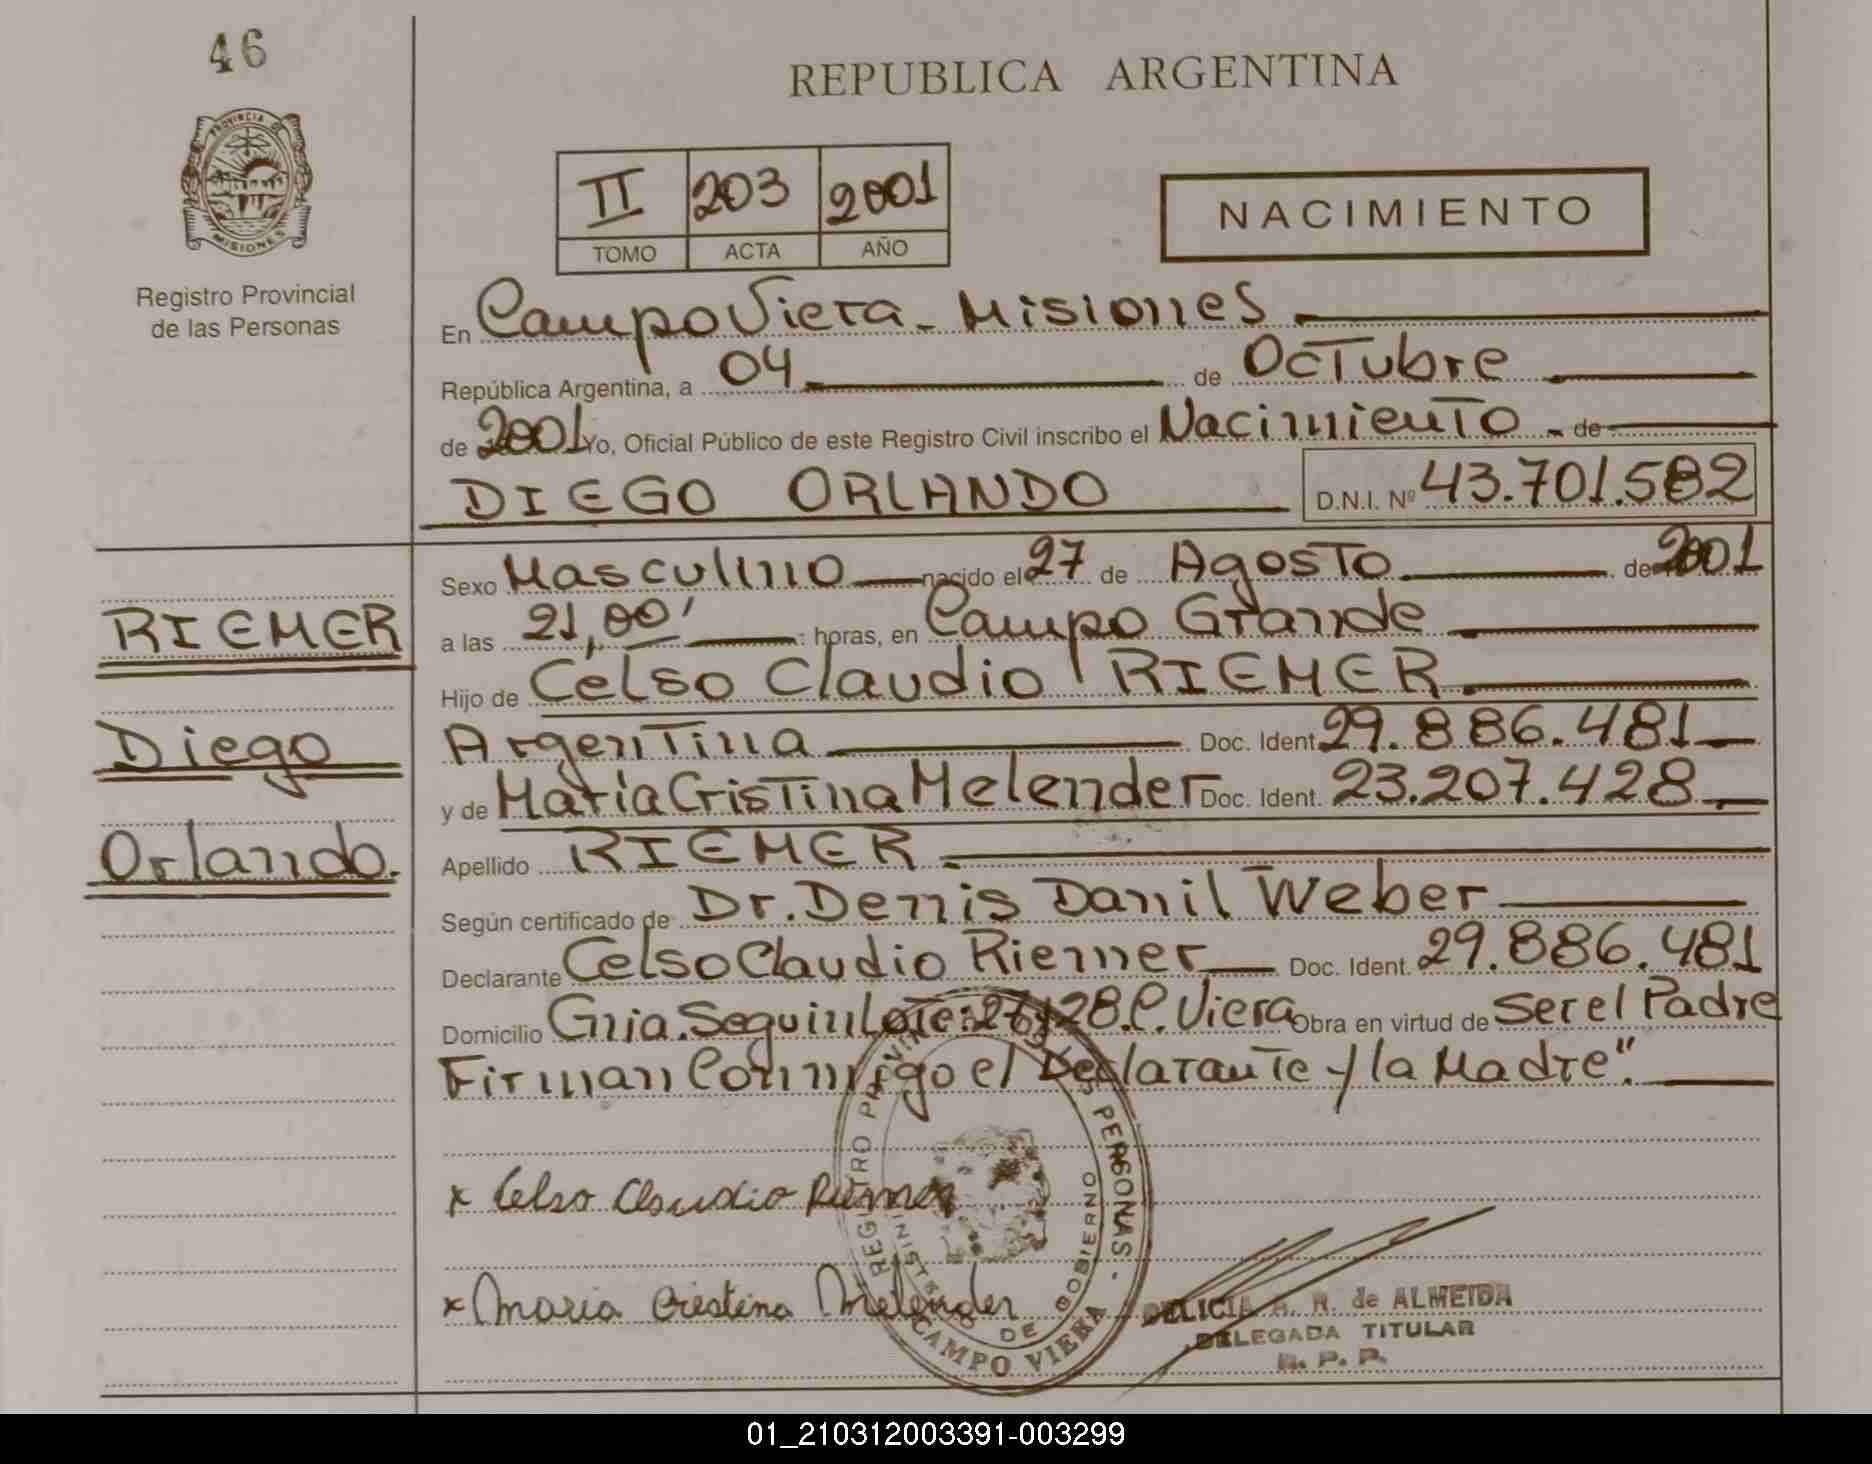 46
REPUBLICA ARGENTINA
PROVINCIA DE
MISIONES
Registro Provincial
de las Personas
II 203 2001
TOMO ACTA AÑO
NACIMIENTO
En Campo Viera - Misiones
República Argentina, a 04 de Octubre
de 2001 Yo, Oficial Público de este Registro Civil inscribo el Nacimiento - de
DIEGO ORLANDO D.N.I. Nº 43.701.582
Sexo Masculino nacido el 27 de Agosto de 2001
a las 21,00' horas, en Campo Grande
Hijo de Celso Claudio RIEMER
Argentina Doc. Ident. 29.886.481
y de María Cristina Melender Doc. Ident. 23.207.428
Apellido RIEMER
Según certificado de Dr. Dennis Danil Weber
Declarante Celso Claudio Riemer Doc. Ident. 29.886.481
Domicilio Gnia. Seguin Lote: 27 y 28. C. Viera Obra en virtud de Ser el Padre
Firman Conmigo el Declarante y la Madre".
RIEMER
Diego
Orlando.
x Celso Claudio Riemer
x Maria Cristina Melender
REGISTRO PROVINCIAL DE LAS PERSONAS -
MINISTERIO DE GOBIERNO
CAMPO VIERA
DELICIA A. R. de ALMEIDA
DELEGADA TITULAR
R. P. P.
01_210312003391-003299